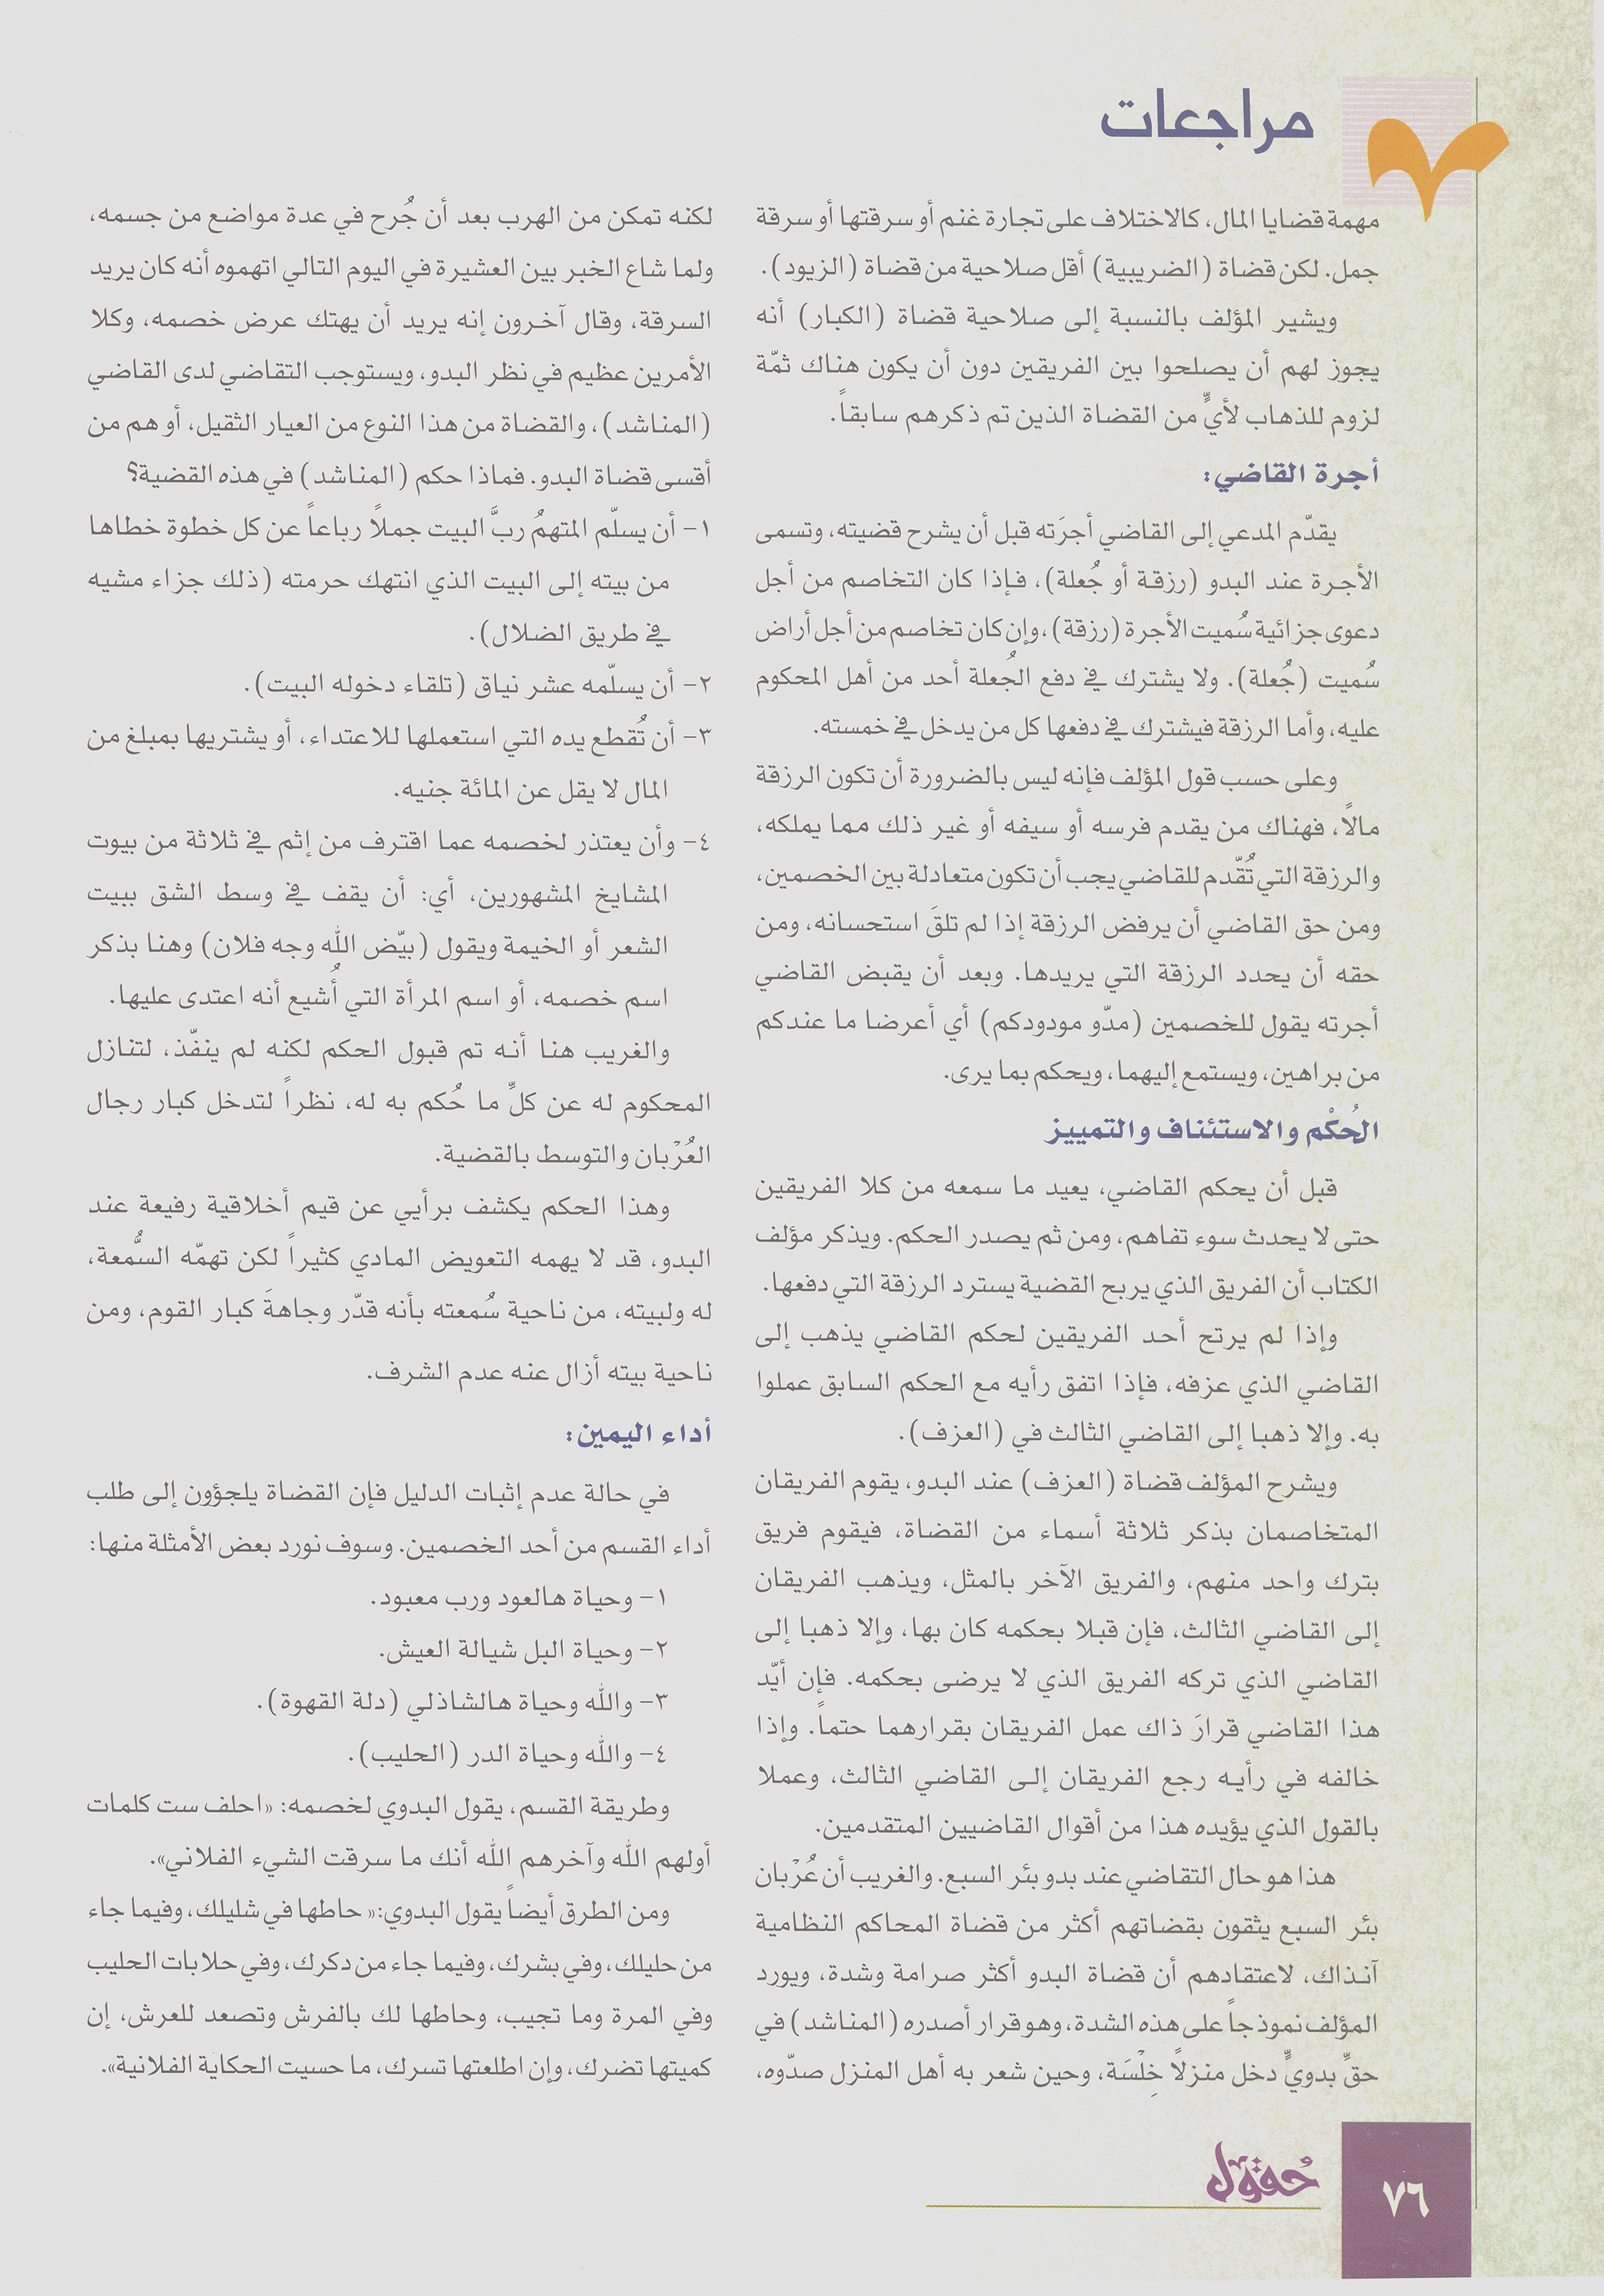 مراجعات
مهمة قضايا المال، كالاختلاف على تجارة غنم أو سرقتها أو سرقة
جمل. لكن قضاة (الضريبية) أقل صلاحية من قضاة (الزيود).
ويشير المؤلف بالنسبة إلى صلاحية قضاة (الكبار) أنه
يجوز لهم أن يصلحوا بين الفريقين دون أن يكون هناك ثمّة
لزوم للذهاب لأيٍّ من القضاة الذين تم ذكرهم سابقاً.
أجرة القاضي:
يقدّم المدعي إلى القاضي أجرَته قبل أن يشرح قضيته، وتسمى
الأجرة عند البدو (رزقة أو جُعلة)، فإذا كان التخاصم من أجل
دعوى جزائية سُميت الأجرة (رزقة)، وإن كان تخاصم من أجل أراض
سُميت (جُعلة). ولا يشترك في دفع الجُعلة أحد من أهل المحكوم
عليه، وأما الرزقة فيشترك في دفعها كل من يدخل في خمسته.
وعلى حسب قول المؤلف فإنه ليس بالضرورة أن تكون الرزقة
مالاً، فهناك من يقدم فرسه أو سيفه أو غير ذلك مما يملكه،
والرزقة التي تُقّدم للقاضي يجب أن تكون متعادلة بين الخصمين،
ومن حق القاضي أن يرفض الرزقة إذا لم تلقَ استحسانه، ومن
حقه أن يحدد الرزقة التي يريدها. وبعد أن يقبض القاضي
أجرته يقول للخصمين (مدّو مودودكم) أي أعرضا ما عندكم
من براهين، ويستمع إليهما، ويحكم بما يرى.
الحُكْم والاستئناف والتمييز
قبل أن يحكم القاضي، يعيد ما سمعه من كلا الفريقين
حتى لا يحدث سوء تفاهم، ومن ثم يصدر الحكم. ويذكر مؤلف
الكتاب أن الفريق الذي يربح القضية يسترد الرزقة التي دفعها.
وإذا لم يرتح أحد الفريقين لحكم القاضي يذهب إلى
القاضي الذي عزفه، فإذا اتفق رأيه مع الحكم السابق عملوا
به. وإلا ذهبا إلى القاضي الثالث في (العزف).
ويشرح المؤلف قضاة (العزف) عند البدو، يقوم الفريقان
المتخاصمان بذكر ثلاثة أسماء من القضاة، فيقوم فريق
بترك واحد منهم، والفريق الآخر بالمثل، ويذهب الفريقان
إلى القاضي الثالث، فإن قبلا بحكمه كان بها، وإلا ذهبا إلى
القاضي الذي تركه الفريق الذي لا يرضى بحكمه. فإن أيّد
هذا القاضي قرارَ ذاك عمل الفريقان بقرارهما حتماً. وإذا
خالفه في رأيه رجع الفريقان إلى القاضي الثالث، وعملا
بالقول الذي يؤيده هذا من أقوال القاضيين المتقدمين.
هذا هو حال التقاضي عند بدو بئر السبع. والغريب أن عُرْبان
بئر السبع يثقون بقضاتهم أكثر من قضاة المحاكم النظامية
آنذاك، لاعتقادهم أن قضاة البدو أكثر صرامة وشدة، ويورد
المؤلف نموذجاً على هذه الشدة، وهو قرار أصدره (المناشد) في
حقِّ بدويٍّ دخل منزلاً خِلْسَة، وحين شعر به أهل المنزل صدّوه،
لكنه تمكن من الهرب بعد أن جُرح في عدة مواضع من جسمه،
ولما شاع الخبر بين العشيرة في اليوم التالي اتهموه أنه كان يريد
السرقة، وقال آخرون إنه يريد أن يهتك عرض خصمه، وكلا
الأمرين عظيم في نظر البدو، ويستوجب التقاضي لدى القاضي
(المناشد)، والقضاة من هذا النوع من العيار الثقيل، أو هم من
أقسى قضاة البدو. فماذا حكم (المناشد) في هذه القضية؟
١- أن يسلّم المتهمُ ربَّ البيت جملاً رباعاً عن كل خطوة خطاها
من بيته إلى البيت الذي انتهك حرمته (ذلك جزاء مشيه
في طريق الضلال).
٢- أن يسلّمه عشر نياق (تلقاء دخوله البيت).
٣- أن تُقطع يده التي استعملها للاعتداء، أو يشتريها بمبلغ من
المال لا يقل عن المائة جنيه.
٤- وأن يعتذر لخصمه عما اقترف من إثم في ثلاثة من بيوت
المشايخ المشهورين، أي: أن يقف في وسط الشق ببيت
الشعر أو الخيمة ويقول (بيّض الله وجه فلان) وهنا بذكر
اسم خصمه، أو اسم المرأة التي أُشيع أنه اعتدى عليها.
والغريب هنا أنه تم قبول الحكم لكنه لم ينفّذ، لتنازل
المحكوم له عن كلِّ ما حُكم به له، نظراً لتدخل كبار رجال
العُرْبان والتوسط بالقضية.
وهذا الحكم يكشف برأيي عن قيم أخلاقية رفيعة عند
البدو، قد لا يهمه التعويض المادي كثيراً لكن تهمّه السُّمعة،
له ولبيته، من ناحية سُمعته بأنه قدّر وجاهةَ كبار القوم، ومن
ناحية بيته أزال عنه عدم الشرف.
أداء اليمين:
في حالة عدم إثبات الدليل فإن القضاة يلجؤون إلى طلب
أداء القسم من أحد الخصمين. وسوف نورد بعض الأمثلة منها:
١- وحياة هالعود ورب معبود.
٢- وحياة البل شيالة العيش.
٣- والله وحياة هالشاذلي (دلة القهوة).
٤- والله وحياة الدر (الحليب).
وطريقة القسم، يقول البدوي لخصمه: «احلف ست كلمات
أولهم الله وآخرهم الله أنك ما سرقت الشيء الفلاني».
ومن الطرق أيضاً يقول البدوي:« حاطها في شليلك، وفيما جاء
من حليلك، وفي بشرك، وفيما جاء من دكرك، وفي حلابات الحليب
وفي المرة وما تجيب، وحاطها لك بالفرش وتصعد للعرش، إن
كميتها تضرك، وإن اطلعتها تسرك، ما حسيت الحكاية الفلانية».
حُقول
٧٦